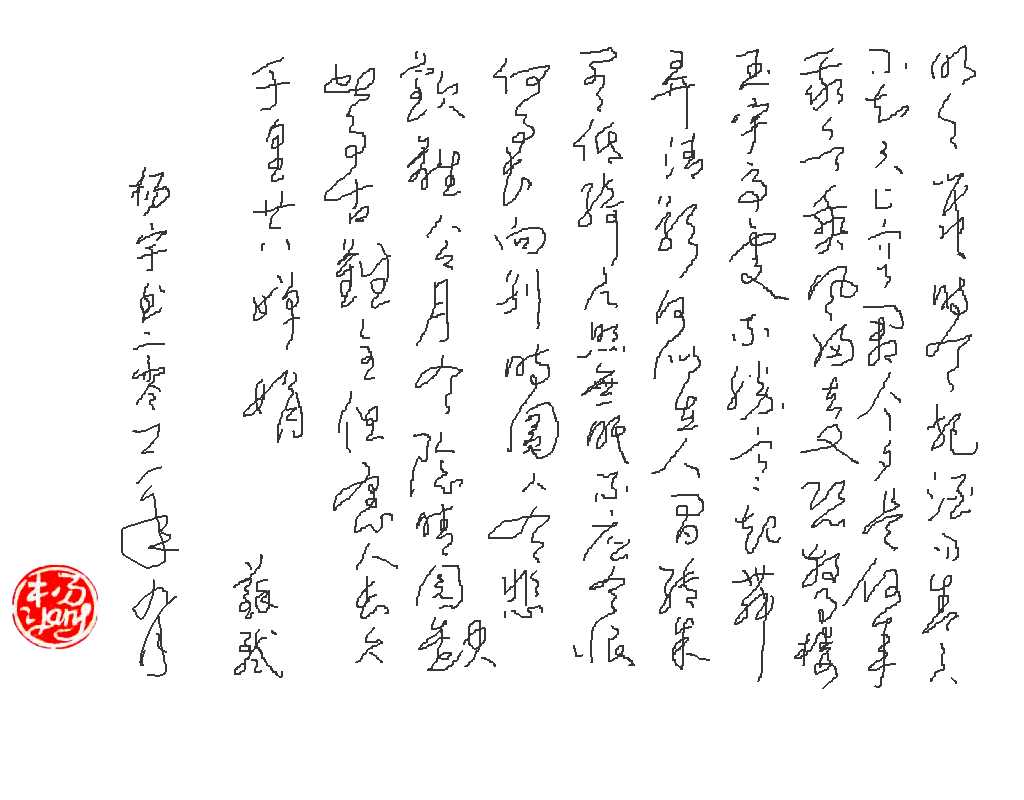 明月幾時有把酒問青天
不知天上宮闕今夕是何年
我欲乘風歸去又恐瓊樓
玉宇高處不勝寒起舞
弄清影何似在人間轉朱
閣低綺戶照無眠不應有恨
何事長向別時圓人有悲
歡離合月有陰晴圓缺
此事古難全但愿人長久
千里共嬋娟
蘇軾
杨宇书二零一一年九月
杨
Yang